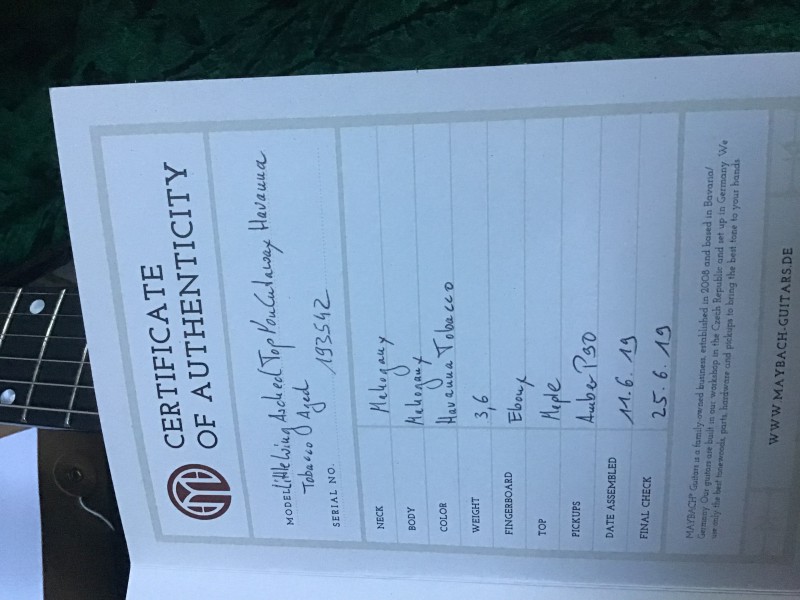 CERTIFICATE
OF AUTHENTICITY
MODEL Little Wing Arched Top Cutaway Havanna
Tobacco Aged
SERIAL NO. 193542
NECK Mahogany
BODY Mahogany
COLOR Havanna Tobacco
WEIGHT 3,6
FINGERBOARD Ebony
TOP Maple
PICKUPS Amber P90
DATE ASSEMBLED 11.6.19
FINAL CHECK 25.6.19
MAYBACH® Guitars is a family-owned business, established in 2008 and based in Bavaria/
Germany. Our guitars are built in our workshop in the Czech Republic and set up in Germany. We
use only the best tonewoods, parts, hardware and pickups to bring the best tone to your hands.
WWW.MAYBACH-GUITARS.DE